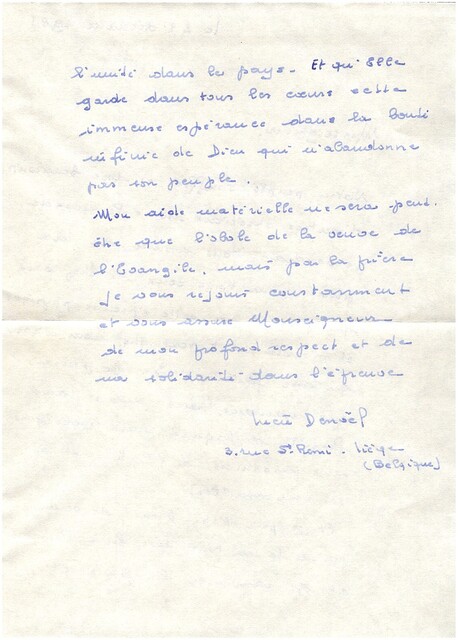 l'unité dans le pays. Et qu'Elle
garde dans tous les cœurs cette
immense espérance dans la bonté
infinie de Dieu qui n'abandonne
pas son peuple.
Mon aide matérielle ne sera peut-
être que l'obole de la veuve de
l'Evangile, mais par la prière
je vous rejoins constamment
et vous assure Monseigneur
de mon profond respect et de
ma solidarité dans l'épreuve
Denoël
3, rue St Remi. Liège
(Belgique)